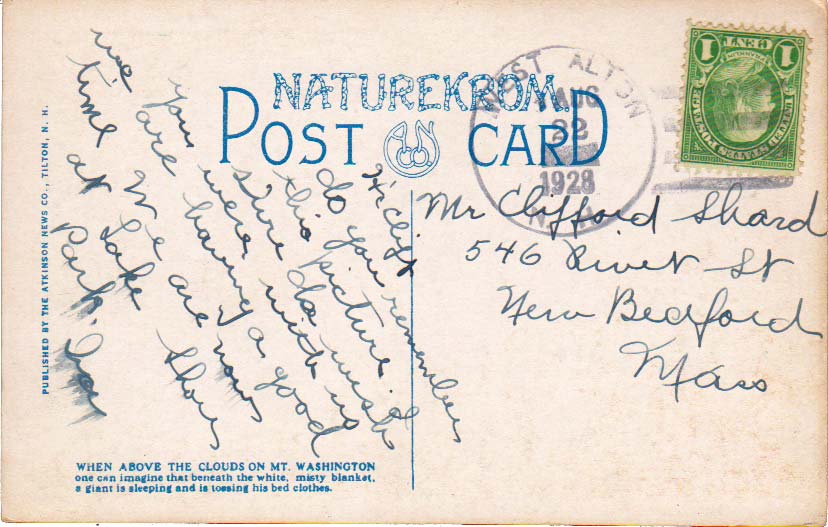 NATUREKROM
POST CARD
WEST ALTON
AUG
22
1928
N.H.
1 CENT 1
FRANKLIN
UNITED STATES POSTAGE
Hi Cliff
do you remember
this picture.
Sure do wish
you were with us
we are having a good
time. We are now
at Lake Shore
Park.
Mr Clifford Shard
546 River St
New Bedford
Mass
WHEN ABOVE THE CLOUDS ON MT. WASHINGTON
one can imagine that beneath the white, misty blanket,
a giant is sleeping and is tossing his bed clothes.
PUBLISHED BY THE ATKINSON NEWS CO., TILTON, N. H.